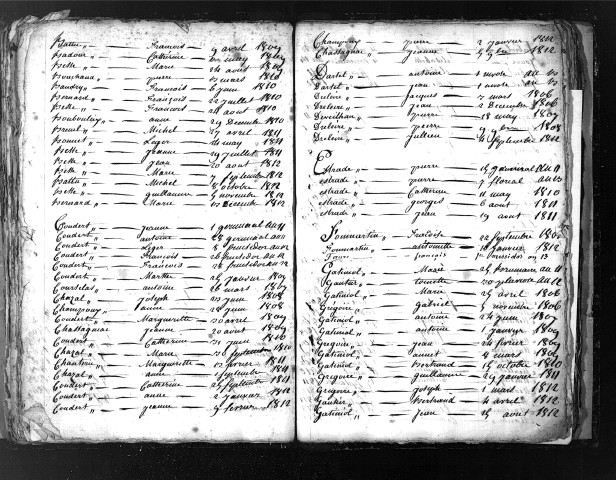 Battu " — François — 9 avril 1809
Badour " — Catérine — 20 may 1809
Beth " — Marie — 24 aout 1809
Bouchaud " — pierre — 10 mars 1810
Baudry " — François — 6 juin 1810
Bernard " — François — 22 juillet 1810
Beth " — François — 24 aout 1810
Boubouloy " — anne — 29 Decembre 1810
Breuil " — Michel — 27 avril 1811
Bonnet " — Leger — 24 may 1811
Beth " — jeanne — 29 juillet 1811
Beth " — jean — 20 aout 1812
Beth " — Marie — 7 Septembre 1812
Battu " — Michel — 8 octobre 1812
Beth " — guillaume — 5 novembre 1812
Bernard " — Marie — 10 Decembre 1812
Coudert " — jeanne — 1 germinal an 11
Coudert " — antoine — 28 germinal an 11
Coudert " — Leger — 8 frucsidor an 12
Coudert " — François — 26 frucsidor an 12
Coudert " — François — 28 frucsidor an 12
Coudert " — Marthe — 25 janvier 1807
Courselas " — antoine — 26 mars 1807
Chazal " — joseph — 20 juin 1808
Champsiaux " — anne — 28 juin 1808
Coudert " — Marguerette — 20 avril 1809
Chattagnac " — jeanne — 20 aout 1809
Coudert " — Catherine — 21 juin 1810
Chazal " — Marie — 20 Septembre 1810
Chantour " — Marguerette — 10 fevrier 1811
Chazal " — anne — 1 Septembre 1811
Coudert " — Catherine — 25 Septembre 1811
Coudert " — anne — 2 janvier 1812
Coudert " — jeanne — 9 fevrier 1812
Champroy " — pierre — 2 janvier 1812
Chattagnac " — jeanne — 1812
Dartel " — antoine — 1
Dartel " — jean — 1
Declere " — jacques — 7 mars 1806
Declere " — jean — 2 Decembre 1806
— pierre — 18 may 1807
Decleire " — pierre — 1808
Decleire " — julien — 4 Septembre 1812
Estrade " — pierre — 19 germinal an 11
estrade " — pierre — 7 floreal
estrade " — Catherine — 11 may 1810
estrade " — georges — 6 aout 1811
estrade " — jean — 19 aout 1811
Fommartin " — François — 22 Septembre 1806
Fommartin " — antoinette — 16 janvier 1812
françois
Gatiniol " — Marie — 25 brumaire an 11
Gautier " — toinette — 20 an 12
Gatiniol " — Marie — 25 avril 1806
Gregoire " — gabriel — 5 novembre 1806
Gatiniol " — antoine — 24 juin 1807
Gatiniol " — antoine — 1 janvier 1809
Gregoire " — jean — 24 fevrier 1809
Gatiniol " — annet — 4 mars 1809
Gatiniol " — Bertrand — 15 octobre 1810
Gregoire " — guillaume — 29 janvier 1811
Gregoire " — joseph — 1 mars 1812
Gautier " — Bertrand — 4 avril 1812
Gatiniol " — jean — 25 aout 1812